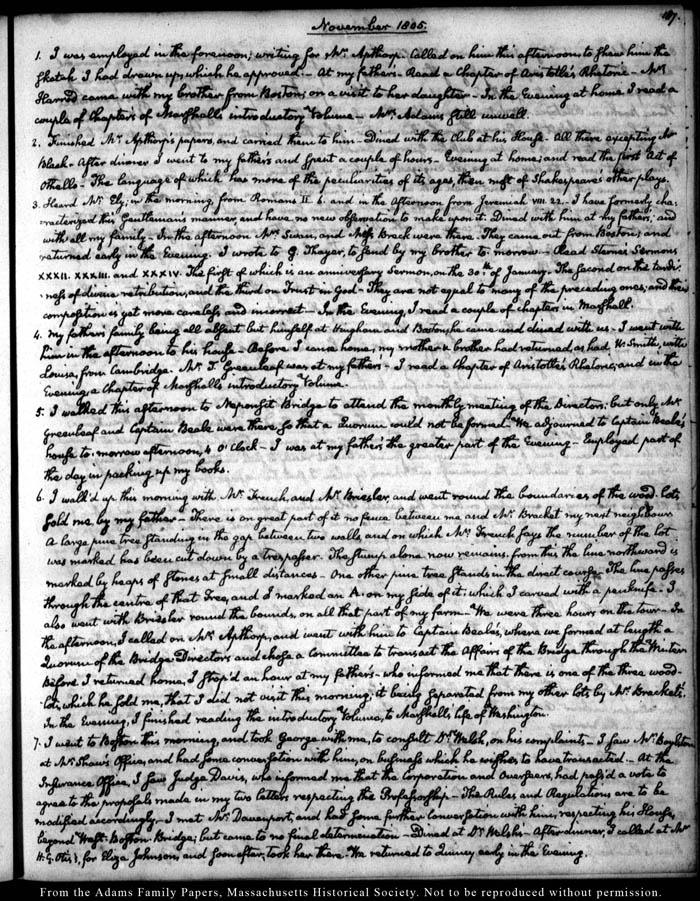 November 1805.
1. I was employed in the forenoon, writing for Mr. Apthorp. Called on him this afternoon to shew him the
sketch I had drawn up, which he approved. — At my father's — Read a Chapter of Aristotle's Rhetoric — Mrs.
Harrod came with my brother from Boston, on a visit to her daughter — In the Evening at home I read a
couple of Chapters of Marshall's introductory Volume — Mrs. Adams still unwell.
2. Finished Mr. Apthorp's papers, and carried them to him — Dined with the Club at his House — All there excepting Mr
Black. After dinner I went to my father's and spent a couple of hours — Evening at home; and read the first Act of
Othello — The language of which has more of the peculiarities of its age, than most of Shakespeare's other plays.
3. Heard Mr. Ely, in the morning, from Romans II. 6. and in the Afternoon from Jeremiah VIII. 22. — I have formerly cha:
:racterized this Gentleman's manner, and have no new observation to make upon it. Dined with him at my father's, and
with all my family — In the afternoon Mrs. Swan, and Miss Brack were there. They came out from Boston; and
returned early in the Evening. I wrote to G. Thayer, to send by my brother to-morrow — Read Sterne's Sermons
XXXII. XXXIII. and XXXIV. The first of which is an anniversary Sermon, on the 30th. of January. The second on the tardi:
:ness of divine retribution, and the third on Trust in God — They are not equal to many of the preceding ones; and their
composition is yet more careless, and incorrect — In the Evening, I read a couple of chapters in Marshall.
4. My father's family being all absent but himself at Hingham and Boston, he came and dined with us — I went with
him in the afternoon to his house — Before I came home, my mother & brother had returned, as had W. Smith, with
Louisa, from Cambridge. Mr. T. Greenleaf was at my father's — I read a Chapter of Aristotle's Rhetoric, and in the
Evening a Chapter of Marshall's introductory Volume.
5. I walked this afternoon to Neponset Bridge to attend the monthly meeting of the Directors; but only Mr.
Greenleaf and Captain Beale were there, so that a Quorum could not be formed. We adjourned to Captain Beale's
house to-morrow afternoon, 4 O'Clock — I was at my father's the greater part of the Evening — Employed part of
the day in packing up my books.
6. I walk'd up this morning with Mr. French, and Mr. Briesler, and went round the boundaries of the wood-lots,
sold me, by my father — There is on great part of it no fence between me and Mr. Bracket my next neighbour
A large pine tree standing in the gap between two walls, and on which Mr. French says the number of the lot
was marked has been cut down by a trespasser. The stump alone now remains. from this the line northward is
marked by heaps of stones at small distances. One other pine tree stands in the direct course. The line passes
through the centre of that Tree, and I marked an A. on my side of it, which I carved with a penknife. I
also went with Briesler round the bounds, on all that part of my farm — We were three hours on the tour — In
the afternoon, I called on Mr. Apthorp, and went with him to Captain Beale's, where we formed at length a
Quorum of the Bridge-Directors and chose a Committee to transact the Affairs of the Bridge through the Winter.
Before I returned home, I stop'd an hour at my father's — who informed me that there is one of the three wood-
lots, which he sold me, that I did not visit this morning; it being separated from my other lots by Mr. Bracket's.
In the Evening, I finished reading the introductory Volume, to Marshall's life of Washington.
7. I went to Boston this morning, and took George with me, to consult Dr. Welsh, on his complaints. — I saw Mr. Boylston
at Mr. Shaw's Office, and had some conversation with him, on business which he wishes to have transacted. — At the
Insurance Office, I saw Judge Davis, who informed me that the Corporation and Overseers, had pass'd a vote to
agree to the proposals made in my two letters respecting the Professorship — The Rules and Regulations are to be
modified accordingly. — I met Mr. Davenport, and had some further Conversation with him, respecting his House,
beyond West-Boston Bridge; but came to no final determination — Dined at Dr. Welsh's — After dinner, I called at Mr
H. G. Otis's, for Eliza Johnson, and soon after, took her there. We returned to Quincy early in the Evening.
From the Adams Family Papers, Massachusetts Historical Society. Not to be reproduced without permission.